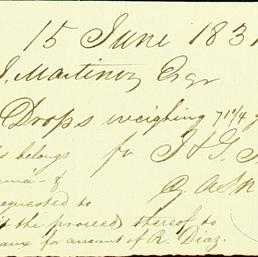 15 June 183
J. Martinez Esqr
Drops weighing 71 1/4
belongs for J & G.
of
requested to
the proceeds thereof to
for amount of R. Diaz.